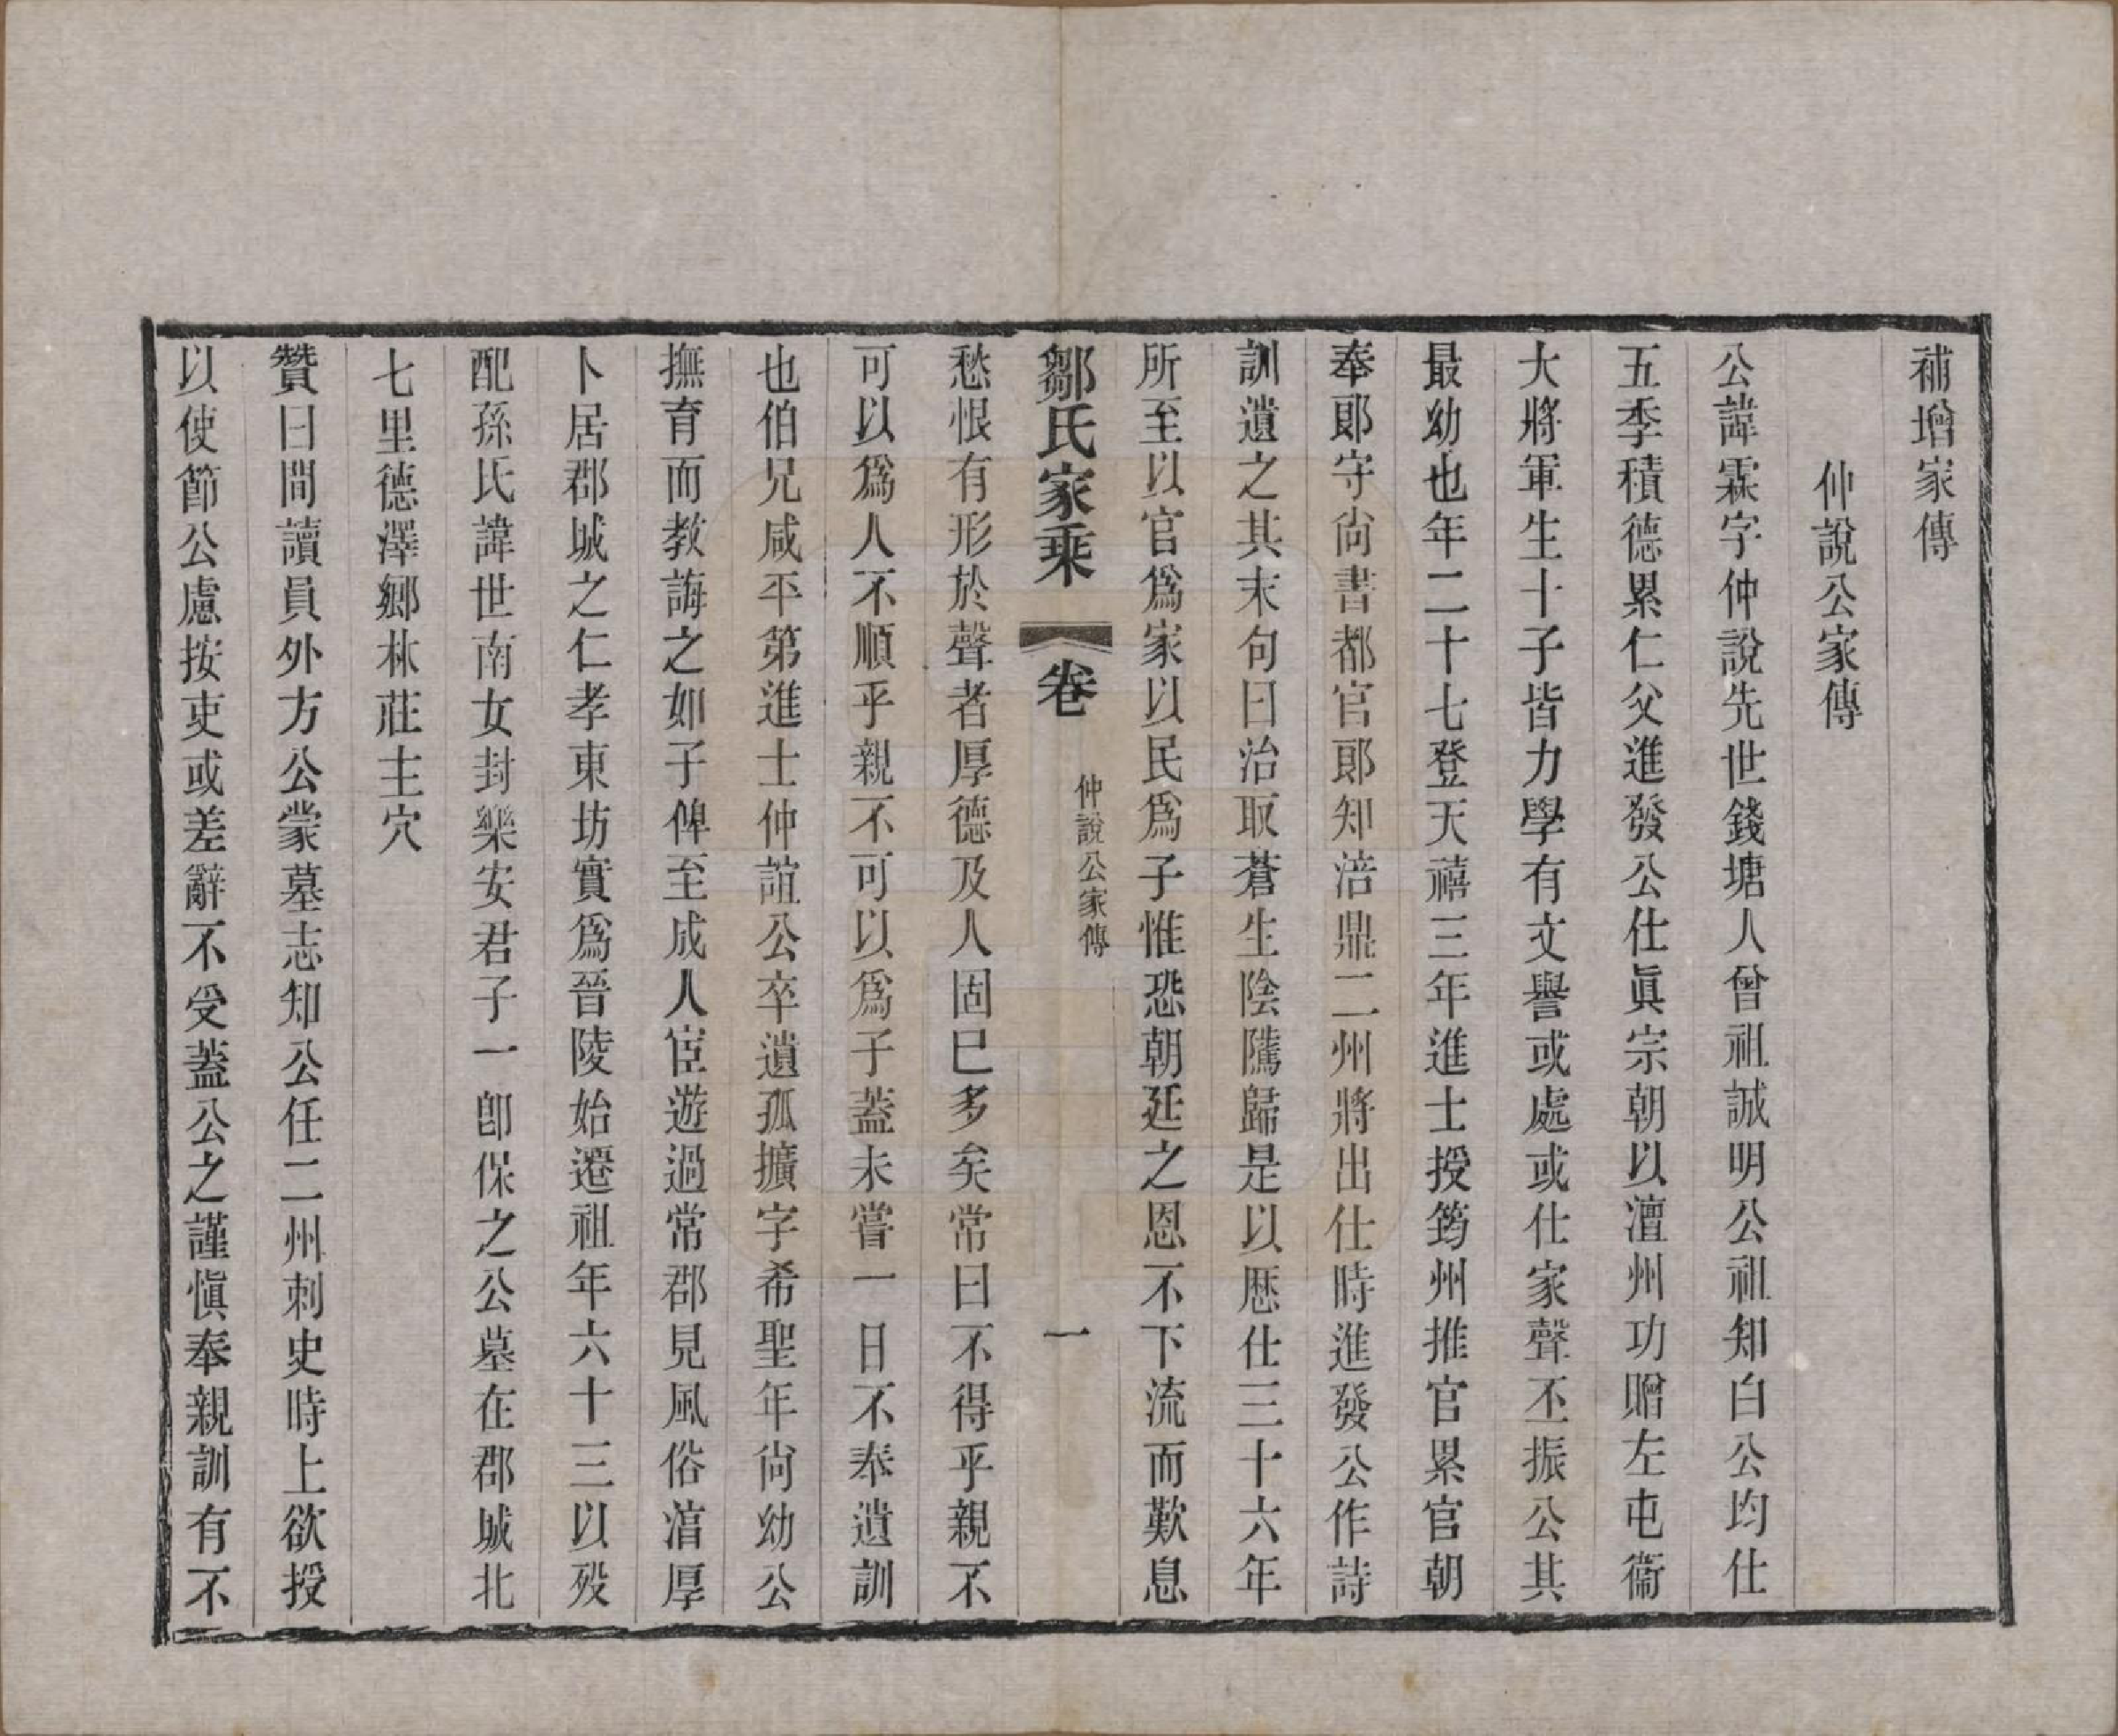 補增家傳
仲說公家傳
公諱霖字仲說先世錢塘人曾祖誠明公祖知白公均仕
五季積德累仁父進發公仕眞宗朝以澶州功贈左屯衞
大將軍生十子皆力學有文譽或處或仕家聲丕振公其
最幼也年二十七登天禧三年進士授筠州推官累官朝
奉郞守尙書都官郞知涪鼎二州將出仕時進發公作詩
訓遺之其末句曰治取蒼生陰隲歸是以歷仕三十六年
所至以官爲家以民爲子惟恐朝廷之恩不下流而歎息
鄒氏家乘 卷 仲說公家傳 一
愁恨有形於聲者厚德及人固已多矣常曰不得乎親不
可以爲人不順乎親不可以爲子蓋未嘗一日不奉遺訓
也伯兄咸平第進士仲誼公卒遺孤擴字希聖年尙幼公
撫育而教誨之如子俾至成人宦遊過常郡見風俗湻厚
卜居郡城之仁孝東坊實爲晉陵始遷祖年六十三以歿
配孫氏諱世南女封樂安君子一卽保之公墓在郡城北
七里德澤鄉林莊主穴
贊曰間讀員外方公蒙墓志知公任二州刺史時上欲授
以使節公慮按吏或差辭不受蓋公之謹愼奉親訓有不